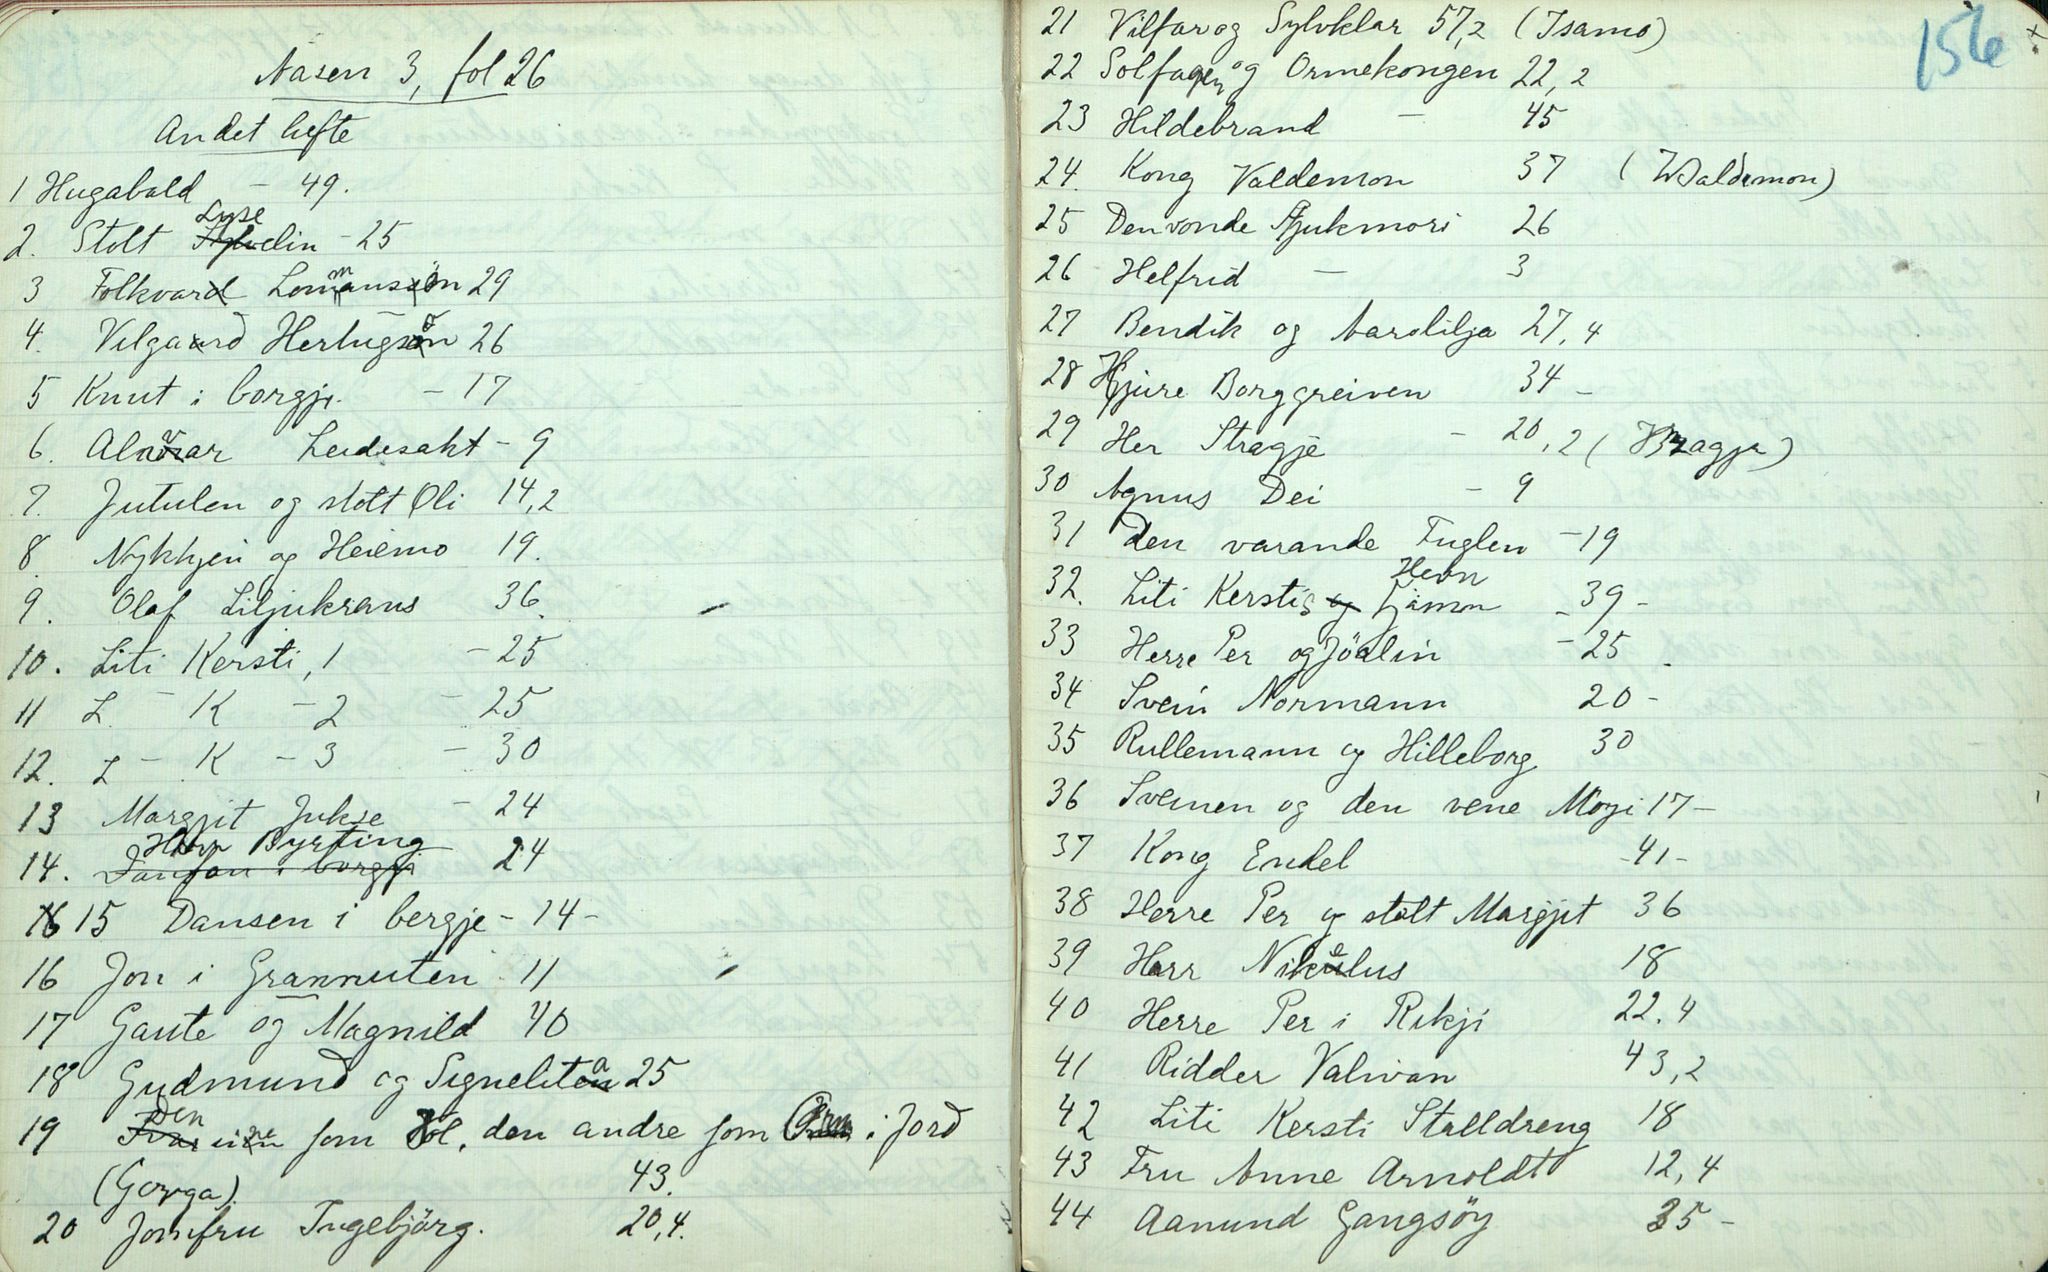 Aasen 3, fol 26
Andet hefte
1 Hugabald - 49.
2. Stolt Lyselin - 25
3 Folkvard Lommansson 29
4. Vilgard Herlugson 26
5 Knut i borgji. - 17
6. Alavar Leidesakt - 9
7. Jutulen og stolt Øli 14,2
8 Nykkjen og Heiemo 19.
9. Olaf Liljukrans 36.
10. Liti Kersti, 1 - 25
11 L - K - 2 - 25
12. L - K - 3 - 30
13 Margjit Jukse - 24
Herr Byrting
14. 24
15 Dansen i bergje - 14 -
16 Jon i Grannuten 11
17 Gaute og Magnild 40
18 Gudmund og Signelita 25
19 Den eine som Sol, den andre som Orm i Jord
(Gorga). 43.
20 Jomfru Ingebjörg. 20,4.
156
21 Vilfar og Sylvklar 57,2 (Isamo)
22 Solfager og Ormekongen 22,2
23 Hildebrand - 45
24. Kong Valdemon 37 (Waldemon)
25 Den vonde Stjukmori 26
26 Helfrid - 3
27 Bendik og Aarolilja 27,4
28 Hjure Borggreiven 34 -
29 Her Stragje - 20,2 (Bragja)
30 Agnus Dei - 9
31 Den varande Fuglen - 19
32. Liti Kerstis Hevn - 39 -
33 Herre Per og Jöalin - 25 -
34 Svein Normann 20 -
35 Rullemann og Hilleborg 30
36 Sveinen og den vene Moyi 17 -
37 Kong Endel - 41 -
38 Herre Per og stolt Margjit 36
39 Herr Nikulus 18
40 Herre Per i Rikji 22.4
41 Ridder Valivan 43,2
42 Liti Kersti Stalldreng 18
43 Fru Anne Arnoldt 12,4
44 Aanund Gangsöy 35 -